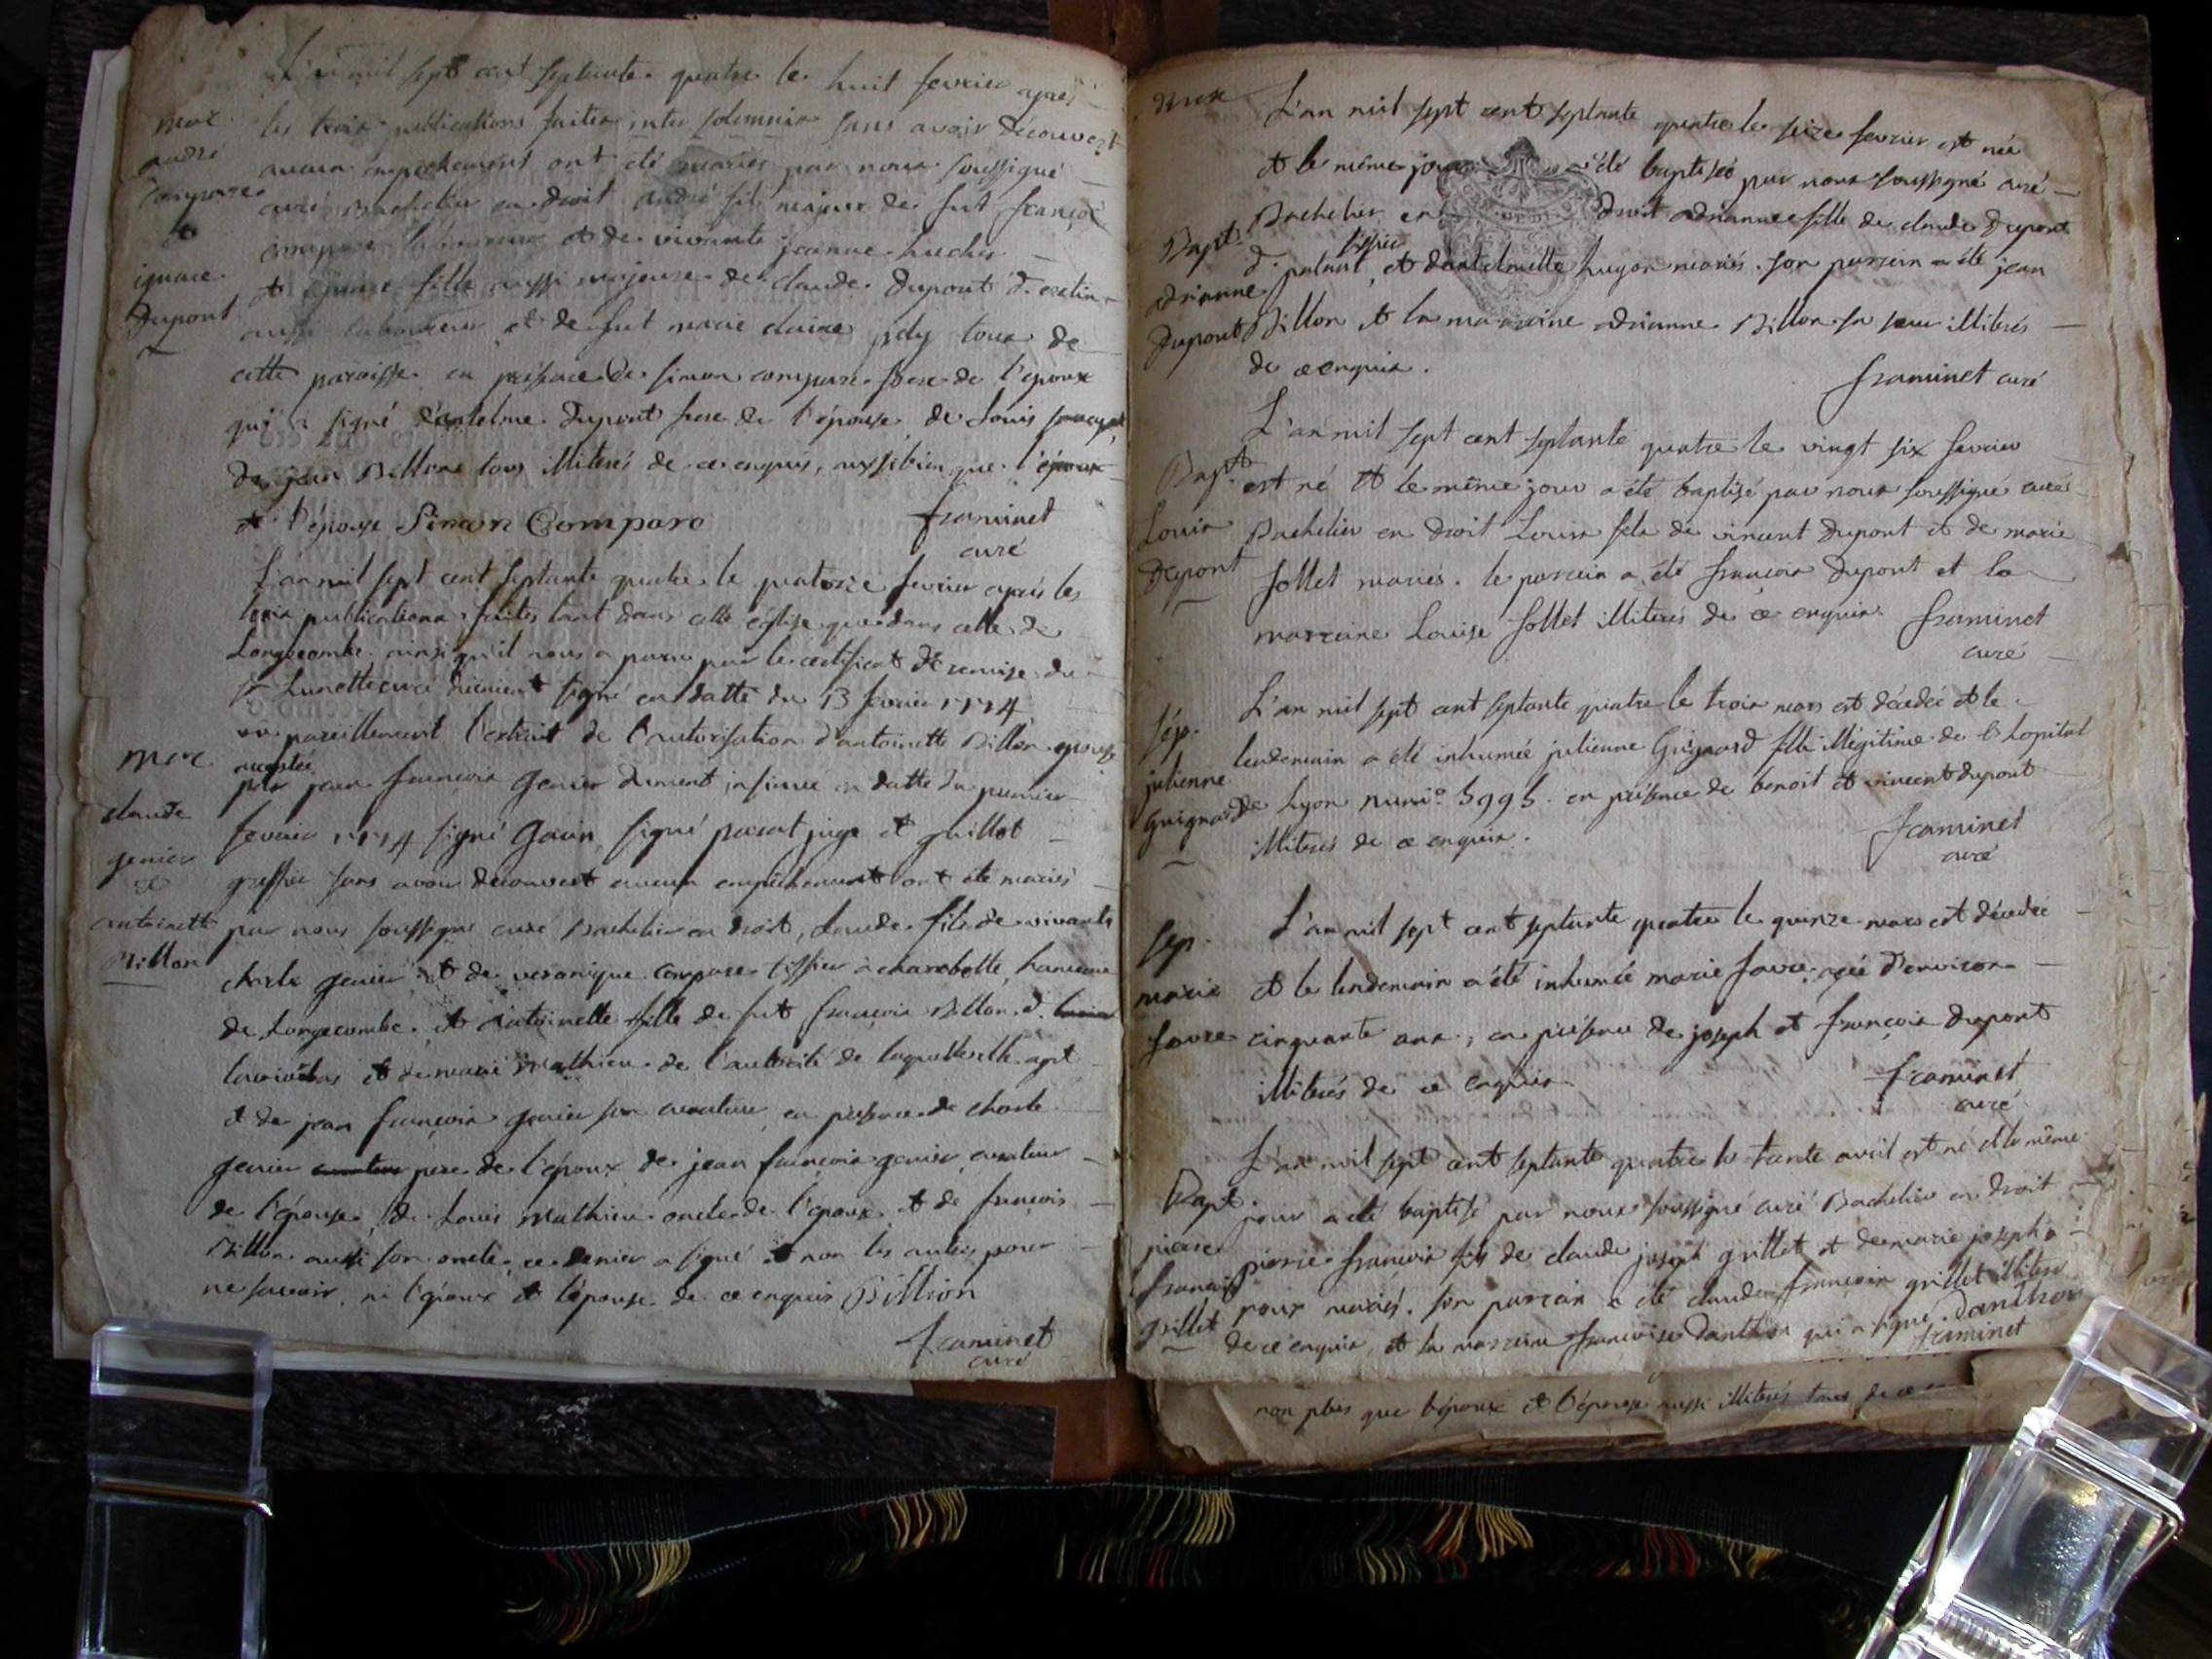 L'an mil sept cent septante quatre le huit fevrier aprés
les trois publications faites inter solemnia sans avoir découvert
aucun empechement ont été mariés par nous soussigné
curé Bachelier en droit andré fils majeur de fut françois
compare laboureur et de vivante jeanne
et fille aussi majeure de claude Dupont d.
aussi laboureur et de fut marie claire joly tous de
cette paroisse en présence de simon compare frere de l'époux
qui a signé d'antelme Dupont frere de l'épouse de Louis
de jean Billion tous illiterés de ce enquis, aussi bien que l'époux
et l'épouse Simon Comparo framinet
curé
mar.
andré
compare
et
ignace
Dupont
L'an mil sept cent septante quatre le quatorze fevrier aprés les
trois publications faites tant dans cette église que dans celle de
Longecombe ainsi qu'il nous a paru par le certificat de remise du
sr Lunette curé duement signé en datte du 13 fevrier 1774
vu pareillement l'extrait de l'autorisation d'antoinette Billon
par jean françois genier dument insinué en datte du premier
fevrier 1774 signé Gouin, signé juge et guillot
greffier sans avoir découvert aucun empêchement ont été mariés
par nous soussigné curé Bachelier en droit, claude fils de vivants
charle genier et de veronique compare tissier à charabotte, hameau
de Longecombe, et antoinette fille de fut françois Billon d.
et de marie mathieu de l'autorité de laquelle elle agit
et de jean françois genier son curateur, en présence de charle
genier curateur pere de l'époux de jean françois genier curateur
de l'épouse, de Louis mathieu oncle de l'épouse et de françois
Billon aussi son oncle, ce dernier a signé et non les autres pour
ne savoir, ni l'époux et l'épouse de ce enquis Billion
framinet
curé
mar
claude
genier
et
antoinette
Billon
deux
L'an mil sept cent septante quatre le seize fevrier est née
et le même jour a été baptisée par nous soussigné curé
Bachelier en droit adrianne fille de claude Dupont
d. patrut tissier et d'antelmette hugon mariés. son parrein a été jean
Billon et la marraine adrianne Billon sa soeur illiterés
de ce enquis.
framinet curé
Bapt.
adrianne
Dupont
L'an mil sept cent septante quatre le vingt six fevrier
est né et le même jour a été baptisé par nous soussigné curé
Bachelier en droit Louis fils de vincent Dupont et de marie
jollet mariés. le parrein a été françois Dupont et la
marraine Louise jollet illiterés de ce enquis. framinet
curé
Bapt.
Louis
Dupont
L'an mil sept cent septante quatre le trois mars est décédée et le
lendemain a été inhumée julienne Guignard fille illégitime de l'hopital
de Lyon numo 5995 en présence de benoit et vincent dupont
illiterés de ce enquis.
framinet
curé
sép.
julienne
Guignard
L'an mil sept cent septante quatre le quinze mars est décédée
et le lendemain a été inhumée marie favre agée d'environ
cinquante ans, en présence de joseph et françois dupont
illiterés de ce enquis.
framinet
curé
sep.
marie
favre
L'an mil sept cent septante quatre le trente avril est né et le même
jour a été baptisé par nous soussigné curé Bachelier en droit
pierre françois fils de claude joseph grillet et de marie josephe
roux mariés. son parrein a été claude françois grillet illiteré
de ce enquis, et la marraine françoise Danthon qui a signé. Danthon
framinet
Bapt.
pierre
françois
grillet
non plus que l'époux et l'épouse aussi illiterés tous de ce